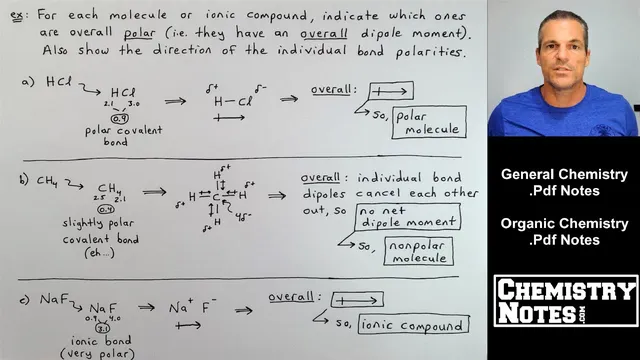 ex: For each molecule or ionic compound, indicate which ones
are overall polar (i.e. they have an overall dipole moment).
Also show the direction of the individual bond polarities.
a) HCl
HCl
2.1 3.0
0.9
polar covalent
bond
⇒
δ+ δ-
H-Cl
⇒ overall:
so, polar
molecule
b) CH4
CH4
2.5 2.1
0.4
slightly polar
covalent bond
(eh...)
⇒
H δ+
δ+ H C H δ+
H δ+
4δ-
⇒ overall: individual bond
dipoles cancel each other
out, so no net
dipole moment
so, nonpolar
molecule
c) NaF
NaF
0.9 4.0
3.1
ionic bond
(very polar)
⇒ Na+ F-
⇒ overall:
so, ionic compound
General Chemistry
.Pdf Notes
Organic Chemistry
.Pdf Notes
CHEMISTRY
NOTES.COM